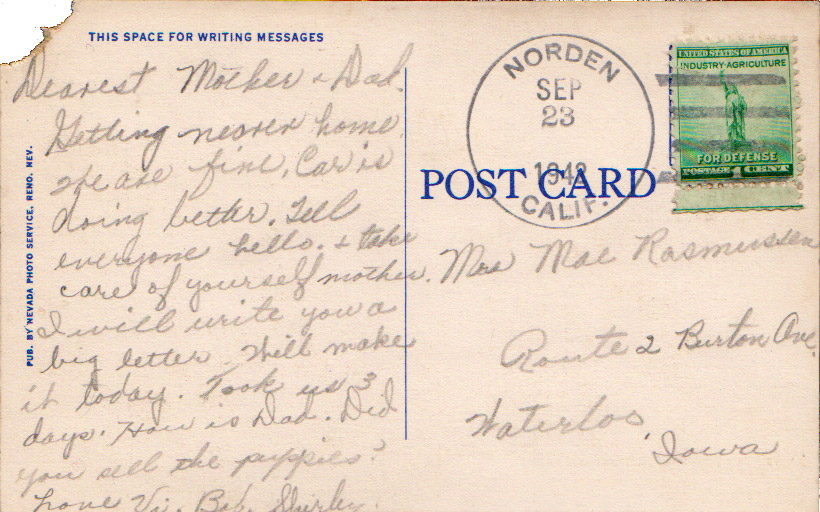 THIS SPACE FOR WRITING MESSAGES
Dearest Mother & Dad.
Getting nearer home.
We are fine, Car is
doing better. Tell
everyone hello. & take
care of yourself mother.
I will write you a
big letter. Will make
it today. Took us 3
days. How is Dad. Did
you sell the puppies?
Love Vi, Bob, Shirley.
PUB. BY NEVADA PHOTO SERVICE, RENO, NEV.
POST CARD
NORDEN
SEP
23
1942
CALIF.
UNITED STATES OF AMERICA
INDUSTRY·AGRICULTURE
FOR DEFENSE
POSTAGE 1 CENT
Mrs Mae Rasmussen
Route 2 Burton Ave.
Waterloo,
Iowa